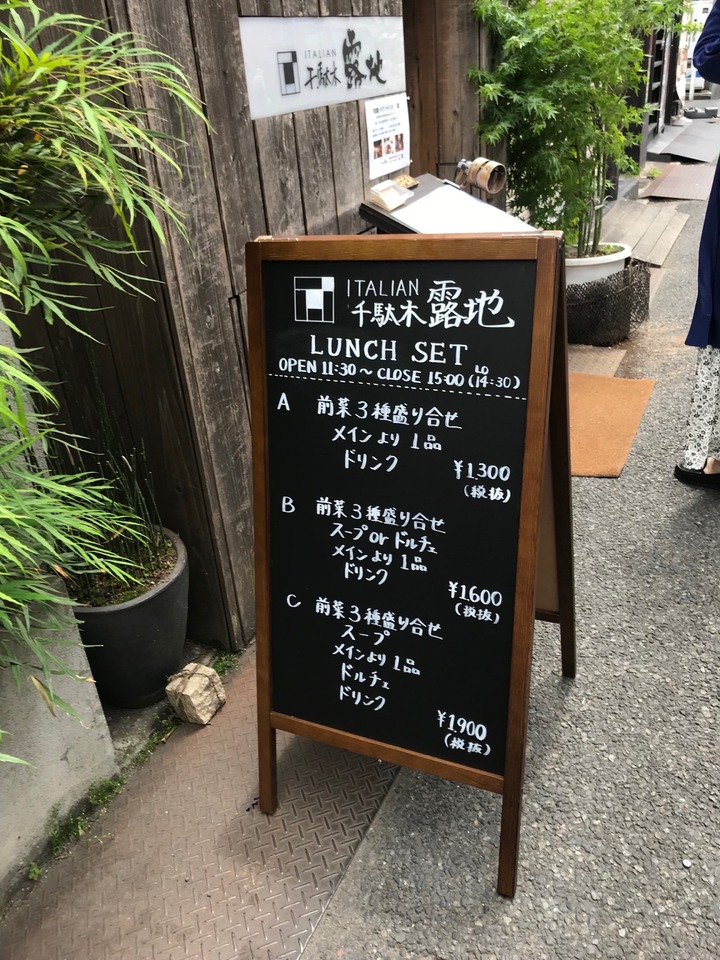 ITALIAN
千駄木 露地
ITALIAN
千駄木 露地
LUNCH SET
OPEN 11:30 ~ CLOSE 15:00 (LO 14:30)
A 前菜3種盛り合せ
メインより1品
ドリンク
¥1,300
(税抜)
B 前菜3種盛り合せ
スープ or ドルチェ
メインより1品
ドリンク
¥1,600
(税抜)
C 前菜3種盛り合せ
スープ
メインより1品
ドルチェ
ドリンク
¥1,900
(税抜)